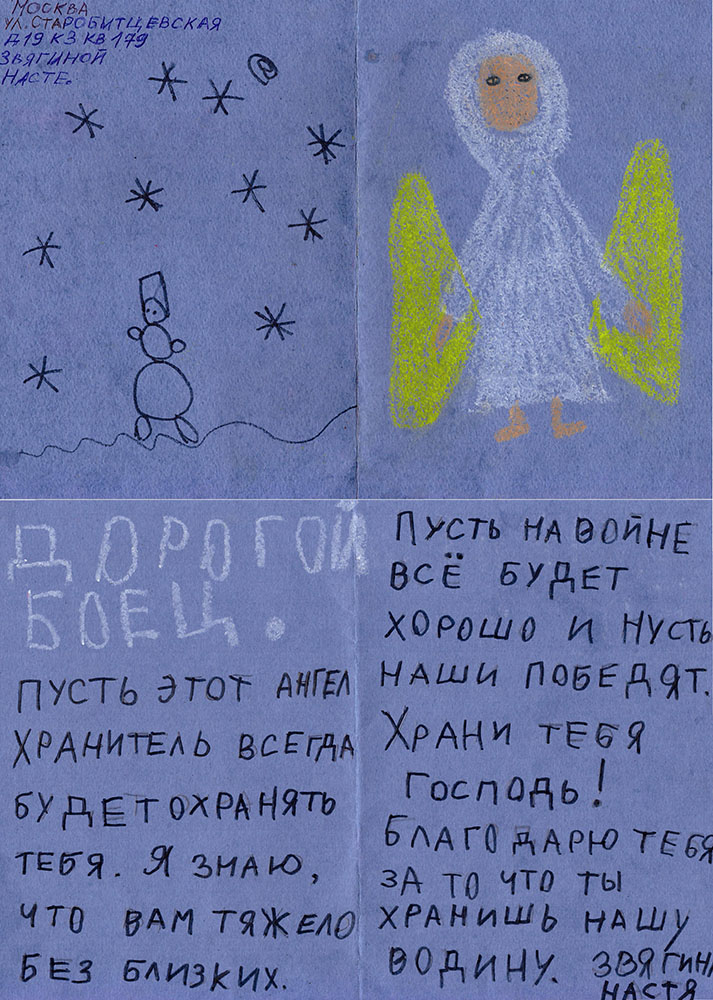 МОСКВА
УЛ.СТАРОБИТЦЕВСКАЯ
Д19 К3 КВ 179
ЗВЯГИНОЙ
НАСТЕ.
ДОРОГОЙ
БОЕЦ.
ПУСТЬ ЭТОТ АНГЕЛ
ХРАНИТЕЛЬ ВСЕГДА
БУДЕТ ОХРАНЯТЬ
ТЕБЯ. Я ЗНАЮ,
ЧТО ВАМ ТЯЖЕЛО
БЕЗ БЛИЗКИХ.
ПУСТЬ НА ВОЙНЕ
ВСЁ БУДЕТ
ХОРОШО И НУСТЬ
НАШИ ПОБЕДЯТ.
ХРАНИ ТЕБЯ
ГОСПОДЬ!
БЛАГОДАРЮ ТЕБЯ
ЗА ТО ЧТО ТЫ
ХРАНИШЬ НАШУ
ВОДИНУ. ЗВЯГИНА
НАСТЯ